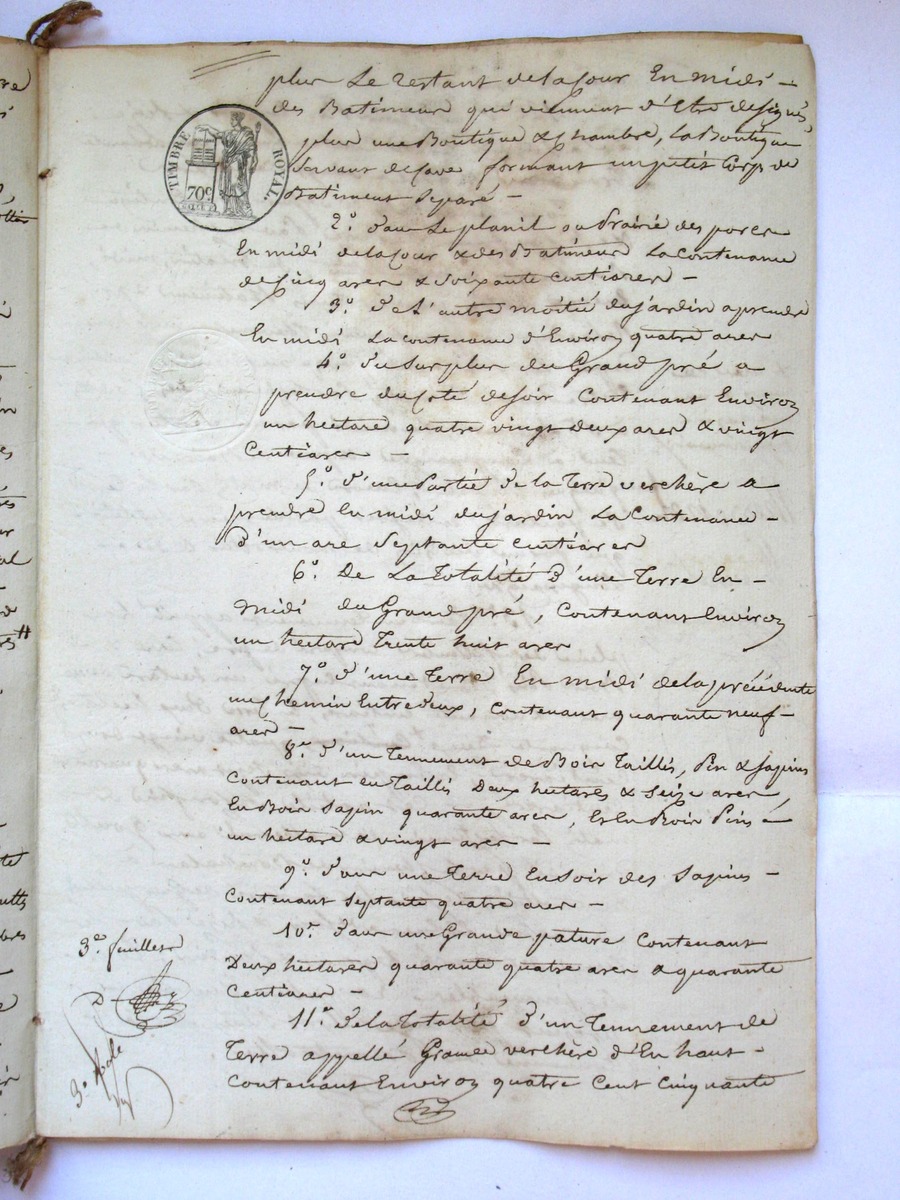 plus Le restant de la Cour En midi -
des Batimens qui viennent d'être designés
plus une Boutique & Chambre, La Boutique
Servant de Cave formant un petit Corp de
Batiment Separé -
TIMBRE ROYAL.
70c
2° Dans Le planil ou Prairié des porcs
En midi de la Cour & des Batimens La Contenance
de Cinq ares & Soixante Centiares -
3° de L'autre moitié du jardin aprendre
En midi La contenance d'Environ quatre ares
4° du Surplus du Grand pré a
prendre du Coté de Soir Contenant Environ
un hectare quatre vingt deux ares & vingt
Centiares -
5° d'une Partie de la Terre verchère a
prendre En midi du jardin La Contenance -
D'un are Septante Centiares
6° De La Totalité d'une Terre En -
midi du Grand pré, Contenant Environ
un hectare Trente huit ares
7° d'une Terre En midi de la précédente
un Chemin Entre deux, Contenant quarante neuf -
ares -
8° d'un Tennement de Bois Taillis, Pin & Sapins
Contenant en Taillis Deux hectares & Seize ares,
En Bois Sapin quarante ares, Et En Bois Pins -
un hectare & vingt ares -
9° Dans une Terre En Soir des Sapins -
Contenant Septante quatre ares -
10° Dans une Grande pature Contenant
Deux hectares quarante quatre ares & quarante
Centiares -
11° de la Totalité d'un Tennement de
Terre appellé Grande verchère d'En haut -
Contenant Environ quatre Cent Cinquante
3e feuillet
D
3e Role